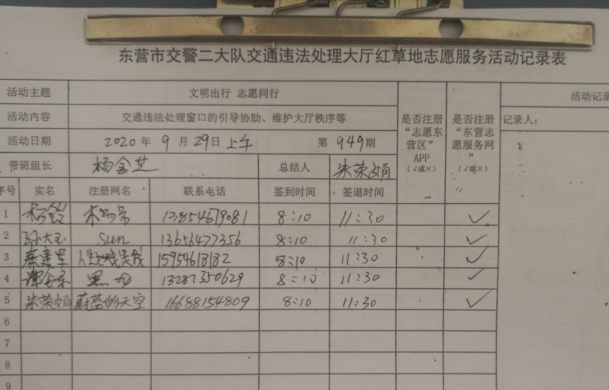 东营市交警二大队交通违法处理大厅红草地志愿服务活动记录表
活动主题 文明出行 志愿同行 活动记录
活动内容 交通违法处理窗口的引导协助、维护大厅秩序等 是否注册“志愿东营区”APP（√或×） 是否注册“东营志愿服务网”（√或×） 记录人：
活动日期 2020年9月29日上午 第949期
带班组长 杨金芝 总结人 朱荣娟
序号 实名 注册网名 联系电话 签到时间 签退时间
1 13854679081 8:10 11:30 ✓
2 孙大玉 Sun 13656477356 8:10 11:30 ✓
3 8:10 11:30 ✓
4 黑力 13287350629 8:10 11:30 ✓
5 朱荣娟 蔚蓝的天空 16688154809 8:10 11:30 ✓
6
7
8
9